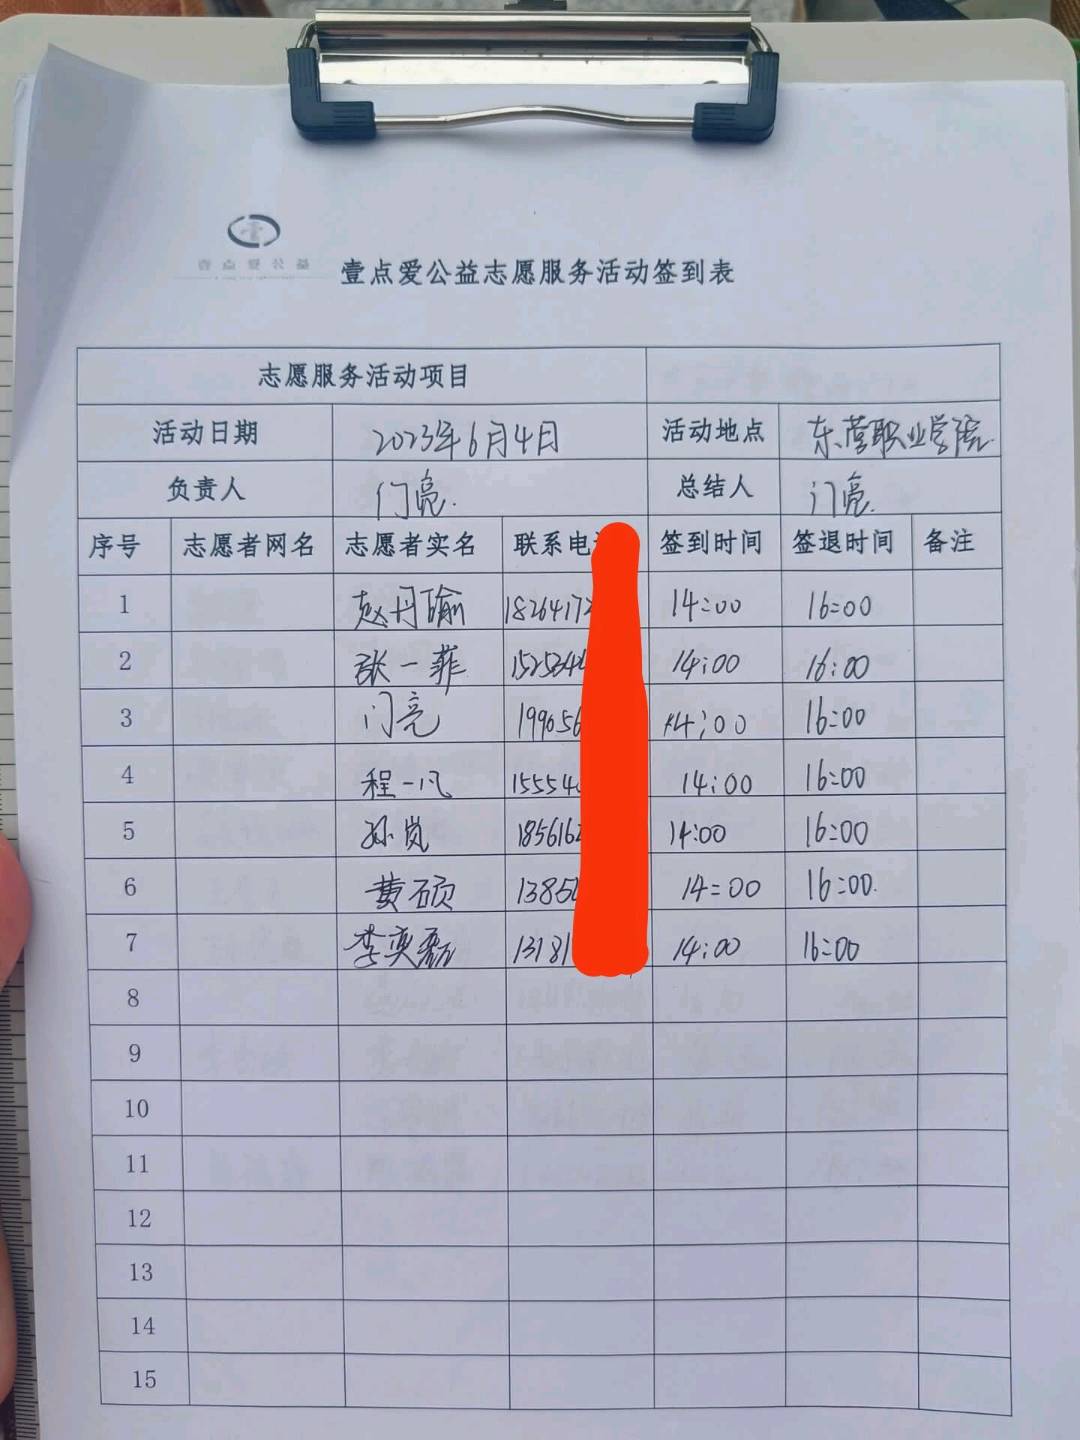 壹点爱公益
壹点爱公益志愿服务活动签到表
志愿服务活动项目
活动日期 2023年6月4日 活动地点 东营职业学院
负责人 门亮. 总结人 门亮.
序号 志愿者网名 志愿者实名 联系电 签到时间 签退时间 备注
1 赵丹瑜 1826417 14:00 16:00
2 张一菲 1525344 14:00 16:00
3 门亮 199056 14:00 16:00
4 程一凡 15554 14:00 16:00
5 孙岚 185616 14:00 16:00
6 黄硕 1385 14:00 16:00.
7 李奕磊 13181 14:00 16:00
8
9
10
11
12
13
14
15